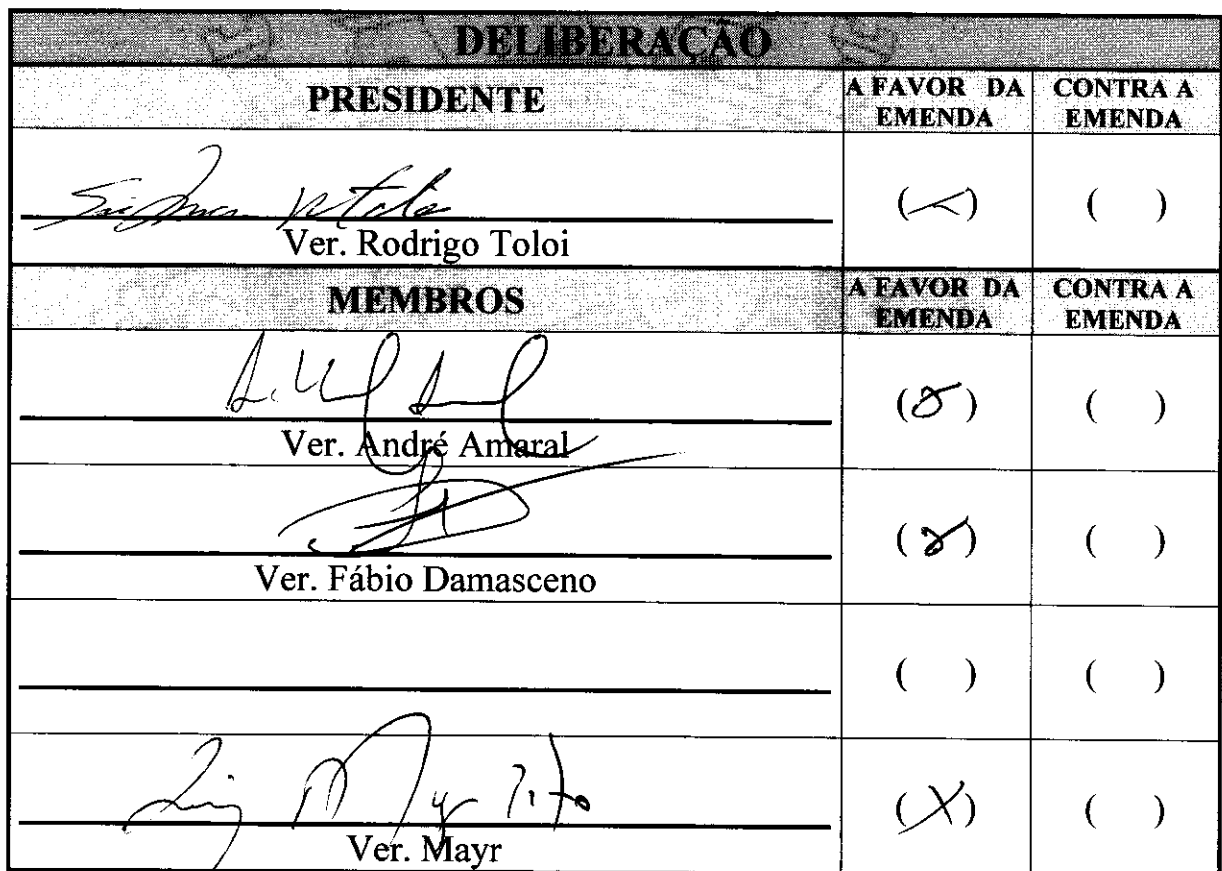 DELIBERAÇÃO
PRESIDENTE
A FAVOR DA EMENDA
CONTRA A EMENDA
( ) ( )
Ver. Rodrigo Toloi
MEMBROS
A FAVOR DA EMENDA
CONTRA A EMENDA
( ) ( )
Ver. André Amaral
( ) ( )
Ver. Fábio Damasceno
( ) ( )
(X) ( )
Ver. Mayr